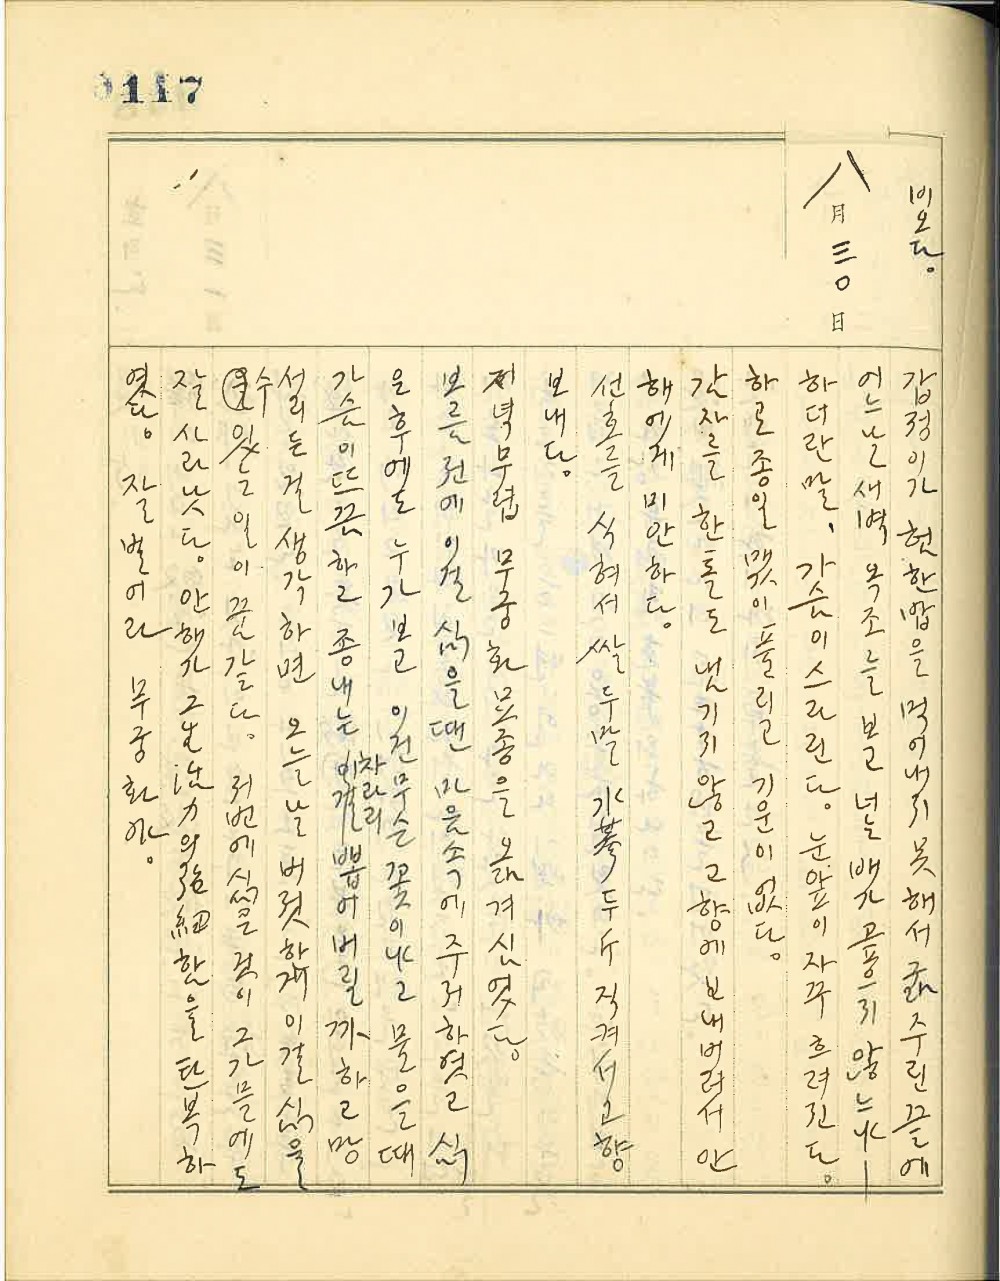 0117
비오다.
八月三〇日
갑정이가 헌한밥을 먹어내지 못해서 굶주린 끝에
어느날 새벽 옥조를 보고 너는 배가 고프지 않느냐ㅡ
하더란 말, 가슴이 스라린다. 눈앞이 자꾸 흐려진다.
하로종일 맺이 풀리고 기운이 없다.
감자를 한톨도 냄기지 않고 고향에 보내버려서 안
해에게 미안하다.
선호를 식혀서 쌀 두말 小麥 두斗 직켜서 고향
보내다.
저녁무렵 무궁화 모종을 옮겨 심엇다.
모를 전에 이걸 심을 때 마음속에 주저하엿고 심
은 후에도 누가 보고 이건 무슨 꽃이냐고 물을 때
가슴이 뜨끈하고 종내는 차라리 이걸 뽑어버릴까 하고 망
설리든 걸 생각하면 오늘날 버젓하게 이걸 심을
수 있는 일이 끝갈다. 저번에 심은 것이 그가믈에도
잘 사라낫다. 안해가 그生活力의 强靭함을 탄복하
엿다. 잘 벌어라 무궁화야.